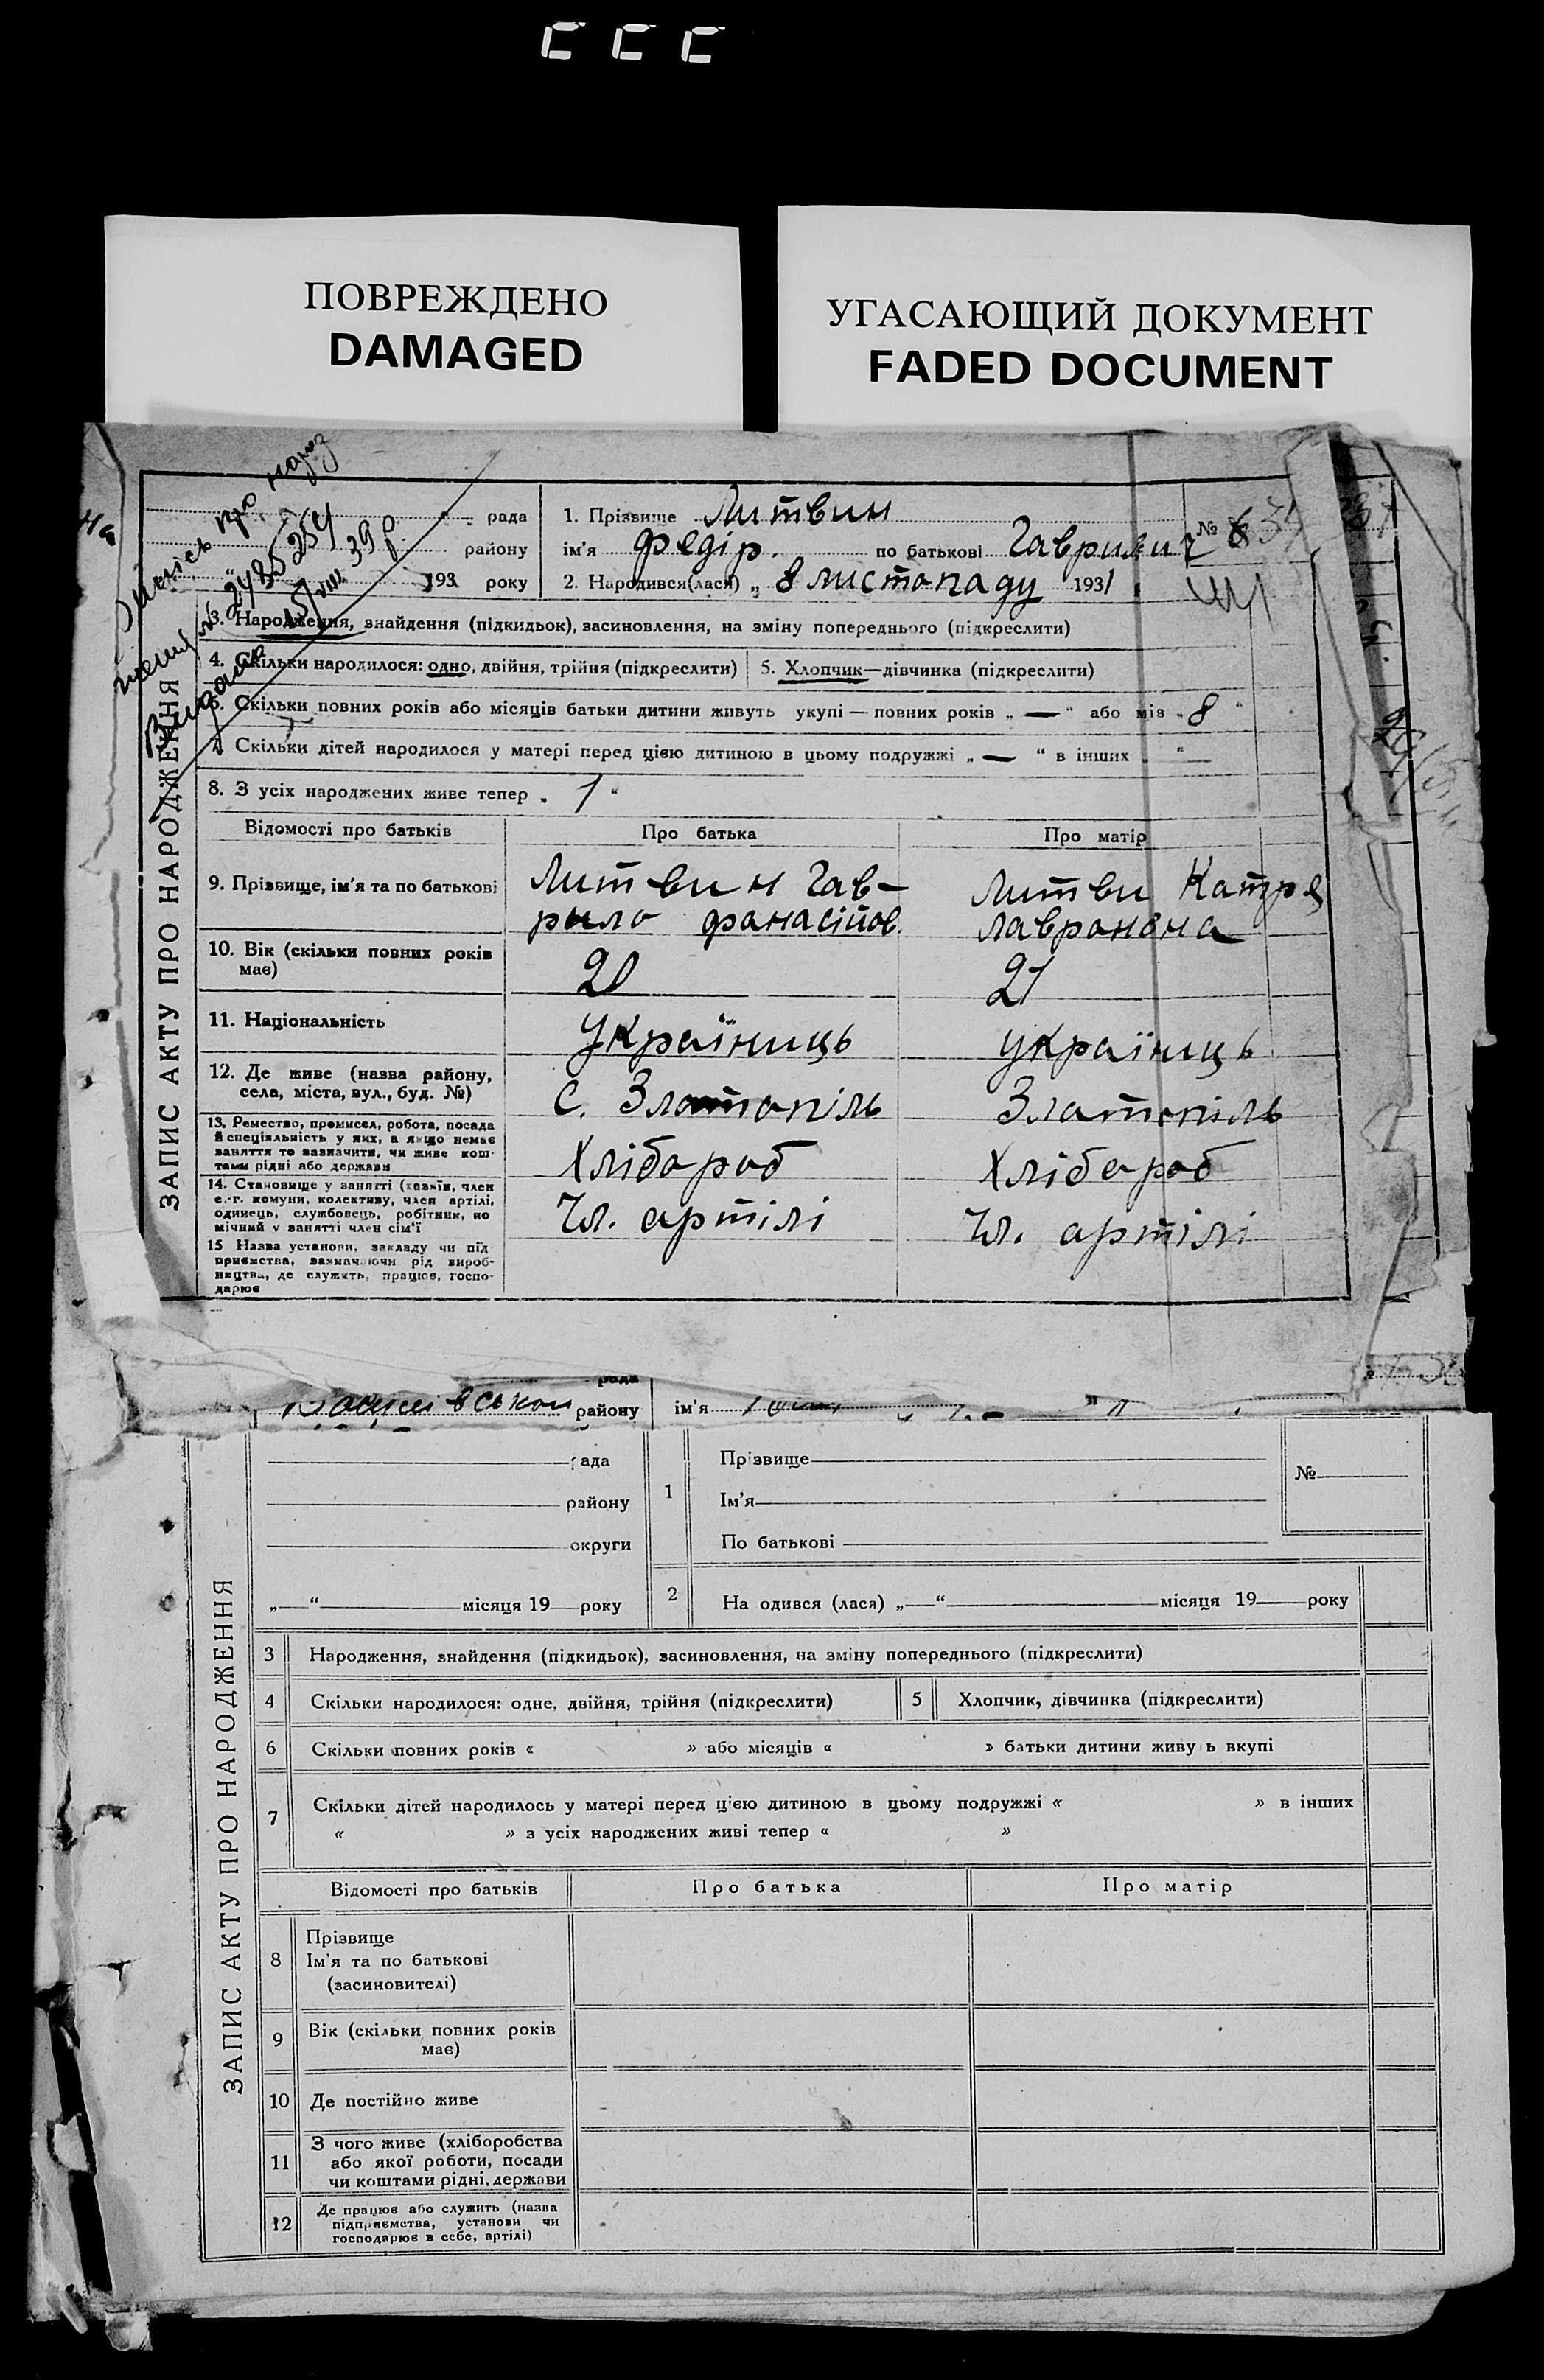 ПОВРЕЖДЕНО
DAMAGED
УГАСАЮЩИЙ ДОКУМЕНТ
FADED DOCUMENT
на
ЗАПИС АКТУ ПРО НАРОДЖЕННЯ
про народ
Видано
2485254
15/VIII 39 р
рада
району
193 року
1. Прізвище Литвин
ім'я Федір. по батькові Гаврилич
№
2. Народився(лася) „ 8 листопаду 1931
3. Народження, знайдення (підкидьок), засиновлення, на зміну попереднього (підкреслити)
4. Скільки народилося: одно, двійня, трійня (підкреслити) 5. Хлопчик—дівчинка (підкреслити)
6. Скільки повних років або місяців батьки дитини живуть укупі — повних років „ — “ або мів „ 8 “
7. Скільки дітей народилося у матері перед цією дитиною в цьому подружжі „ — “ в інших „ — “
8. З усіх народжених живе тепер „ 1 “
Відомості про батьків Про батька Про матір
9. Прізвище, ім'я та по батькові
Литвин Гав-
рило Фанасійов.
Литви Катря
Лавронвна
10. Вік (скільки повних років
має)
20
21
11. Національність
Україниць
Україниць
12. Де живе (назва району,
села, міста, вул., буд. №)
С. Златопіль
Златопіль
13. Ремество, промисел, робота, посада
й спеціяльність у них, а якщо немає
заняття то зазначити, чи живе кош-
тами рідні або держави
Хлібороб
Хлібороб
14. Становище у занятті (хазяїн, член
с.-г. комуни, колективу, член артілі,
одинець, службовець, робітник, по
мічний у занятті член сім'ї
Чл. артілі
Чл. артілі
15 Назва установи, закладу чи під
приємства, зазначаючи рід вироб-
ництва, де служить, працює, госпо-
дарює
рада
району ім'я
ЗАПИС АКТУ ПРО НАРОДЖЕННЯ
рада
району
округи
„ “ місяця 19 року
1
Прізвище
Ім'я
По батькові
№
2 На одився (лася) „ “ місяця 19 року
3 Народження, знайдення (підкидьок), засиновлення, на зміну попереднього (підкреслити)
4 Скільки народилося: одне, двійня, трійня (підкреслити) 5 Хлопчик, дівчинка (підкреслити)
6 Скільки повних років « » або місяців « » батьки дитини живу ь вкупі
7 Скільки дітей народилось у матері перед цією дитиною в цьому подружжі « » в інших
« » з усіх народжених живі тепер « »
Відомості про батьків Про батька Про матір
8 Прізвище
Ім'я та по батькові
(засиновителі)
9 Вік (скільки повних років
має)
10 Де постійно живе
11 З чого живе (хліборобства
або якої роботи, посади
чи коштами рідні, держави
12 Де працює або служить (назва
підприємства, установи чи
господарює в себе, артілі)